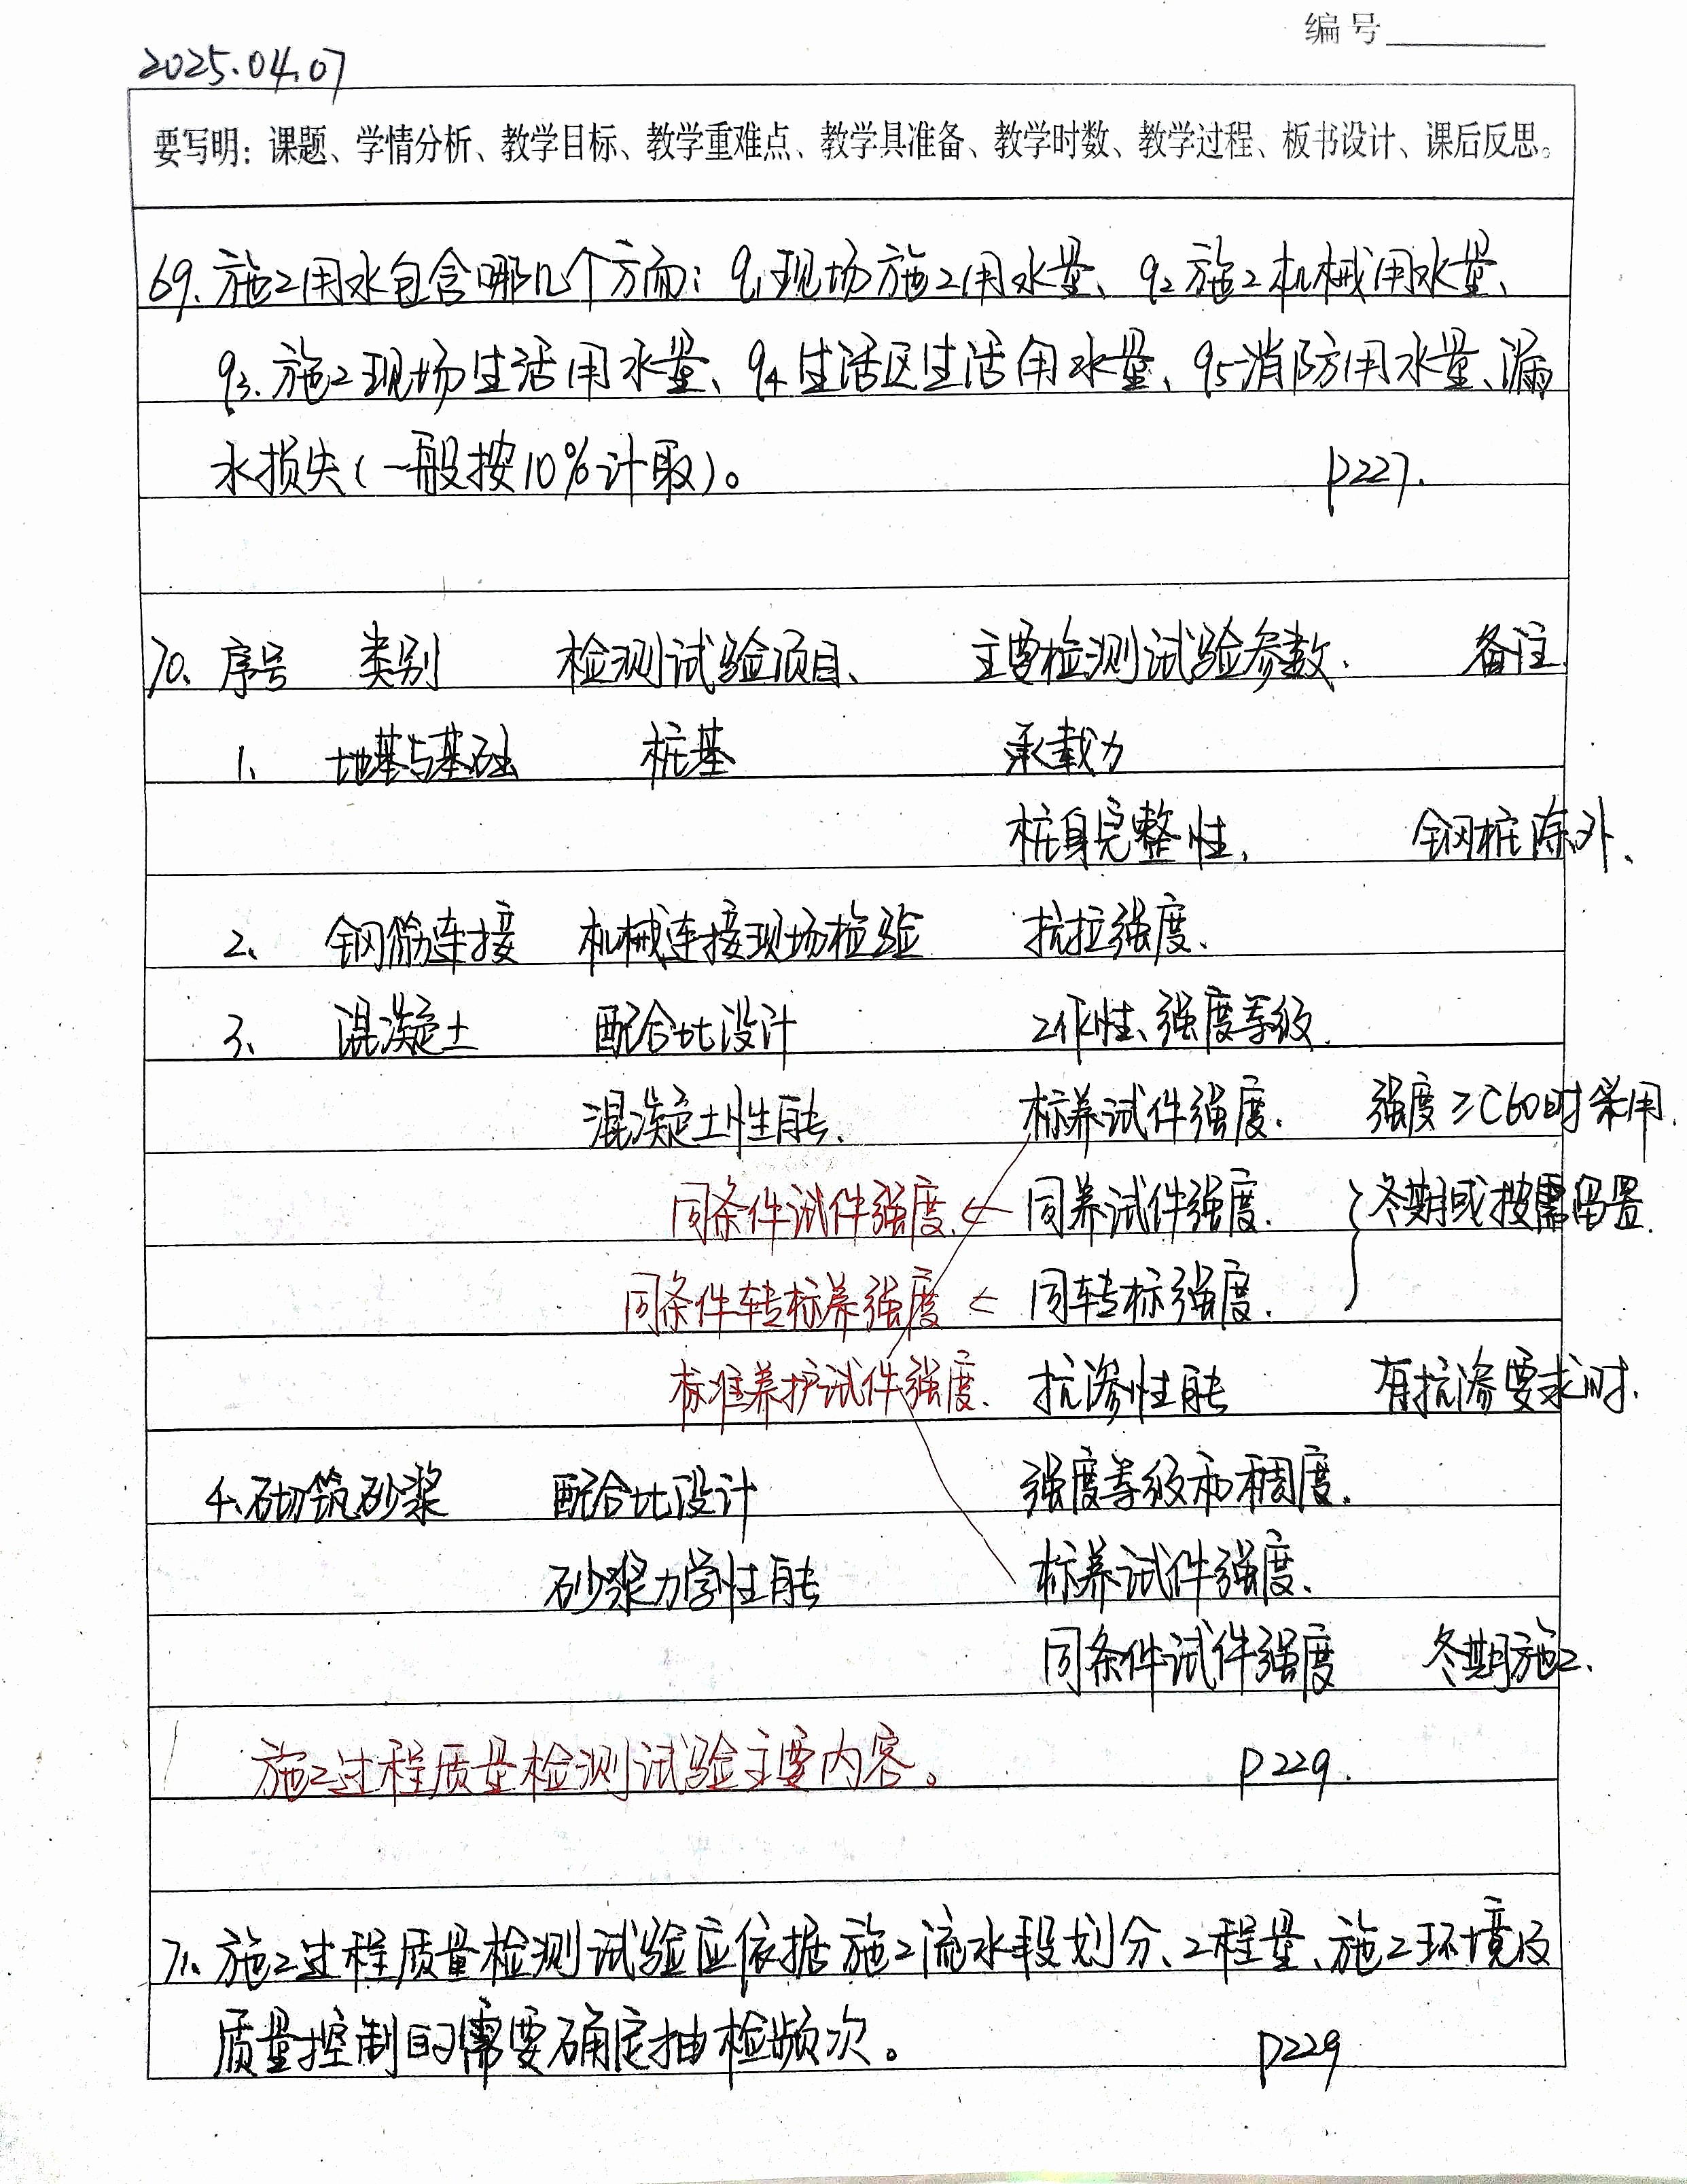 编号
2025.04.07
要写明：课题、学情分析、教学目标、教学重难点、教学具准备、教学时数、教学过程、板书设计、课后反思。
69. 施工用水包含哪几个方面：q1现场施工用水量、q2施工机械用水量、
q3.施工现场生活用水量、q4生活区生活用水量、q5消防用水量、漏
水损失（一般按10%计取）。 P227.
70. 序号 类别 检测试验项目、 主要检测试验参数. 备注.
1、 地基与基础 桩基 承载力
桩身完整性, 钢桩除外、
2、 钢筋连接 机械连接现场检验 抗拉强度、
3、 混凝土 配合比设计 工作性、强度等级.
混凝土性能、 标养试件强度. 强度≥C60时采用.
同条件试件强度. ← 同养试件强度. }冬期或按需留置.
同条件转标养强度 ← 同转标强度.
标准养护试件强度. 抗渗性能 有抗渗要求时.
4、砌筑砂浆 配合比设计 强度等级和稠度.
砂浆力学性能 标养试件强度.
同条件试件强度 冬期施工.
施工过程质量检测试验主要内容。 P229.
71. 施工过程质量检测试验应依据施工流水段划分、工程量、施工环境及
质量控制的需要确定抽检频次。 P229